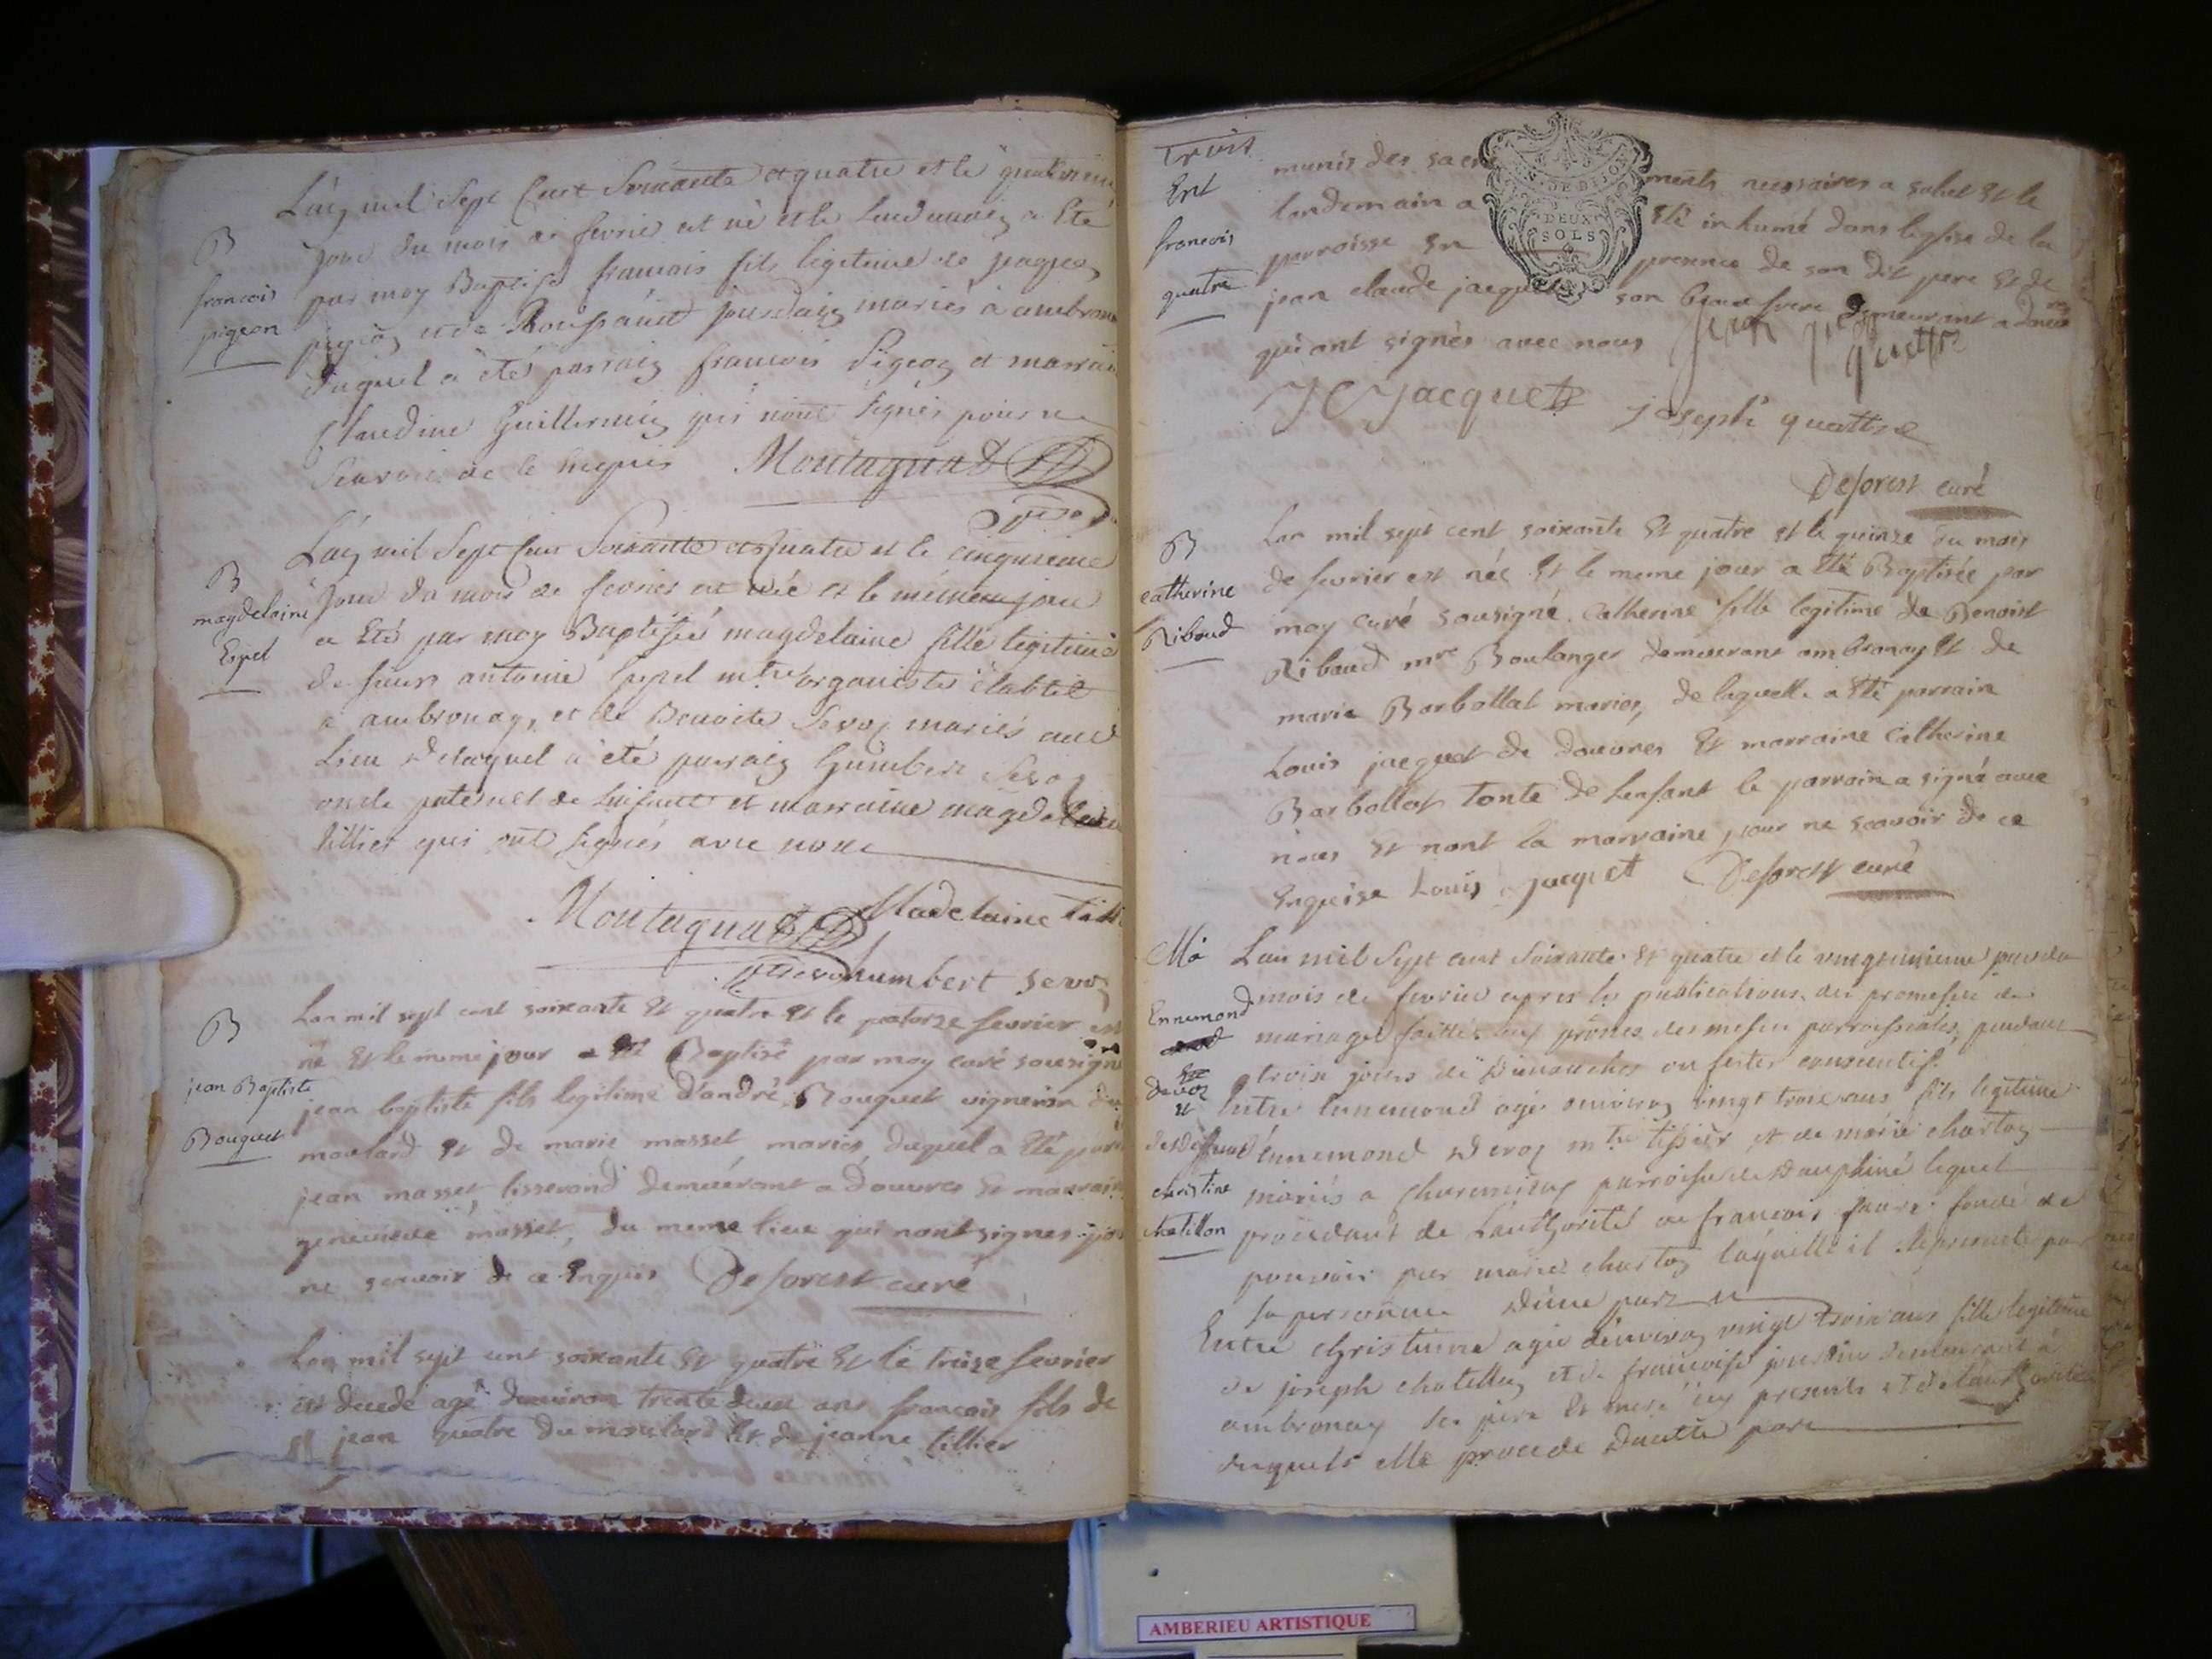 B
francois
pigeon
Lan mil Sept Cent Soixante et quatre et le quatrieme
Jour du mois de fevrier est né et le lendemain a Eté
par moy Baptisé francois fils legitime de jaques
pigeon et de jourdain mariés à ambronay
duquel a eté parrain francois Pigeon et marraine
Claudine Guillermin qui nont signés pour ne
Scavoir de ce Enquis Montagnat
B
magdelaine
Espel
Lan mil Sept Cent Soixante et quatre et le cinquieme
Jour du mois de fevrier est née et le meme jour
a Eté par moy Baptisée magdelaine fille legitime
de sieur antoine Espel mtre organiste établit
a ambronay, et de Benoite Sevoz mariés audt
Lieu delaquel a eté parrain humbert Sevoz
oncle paternel de lenfant et marraine magdelaine
tillier qui ont signés avec nous
Montagnat Madelaine
humbert Sevoz
B
jean Baptiste
Bouquet
Lan mil sept cent soixante Et quatre Et le quatorze fevrier est
né Et le meme jour a Eté Baptisé par moy curé sousigné
jean baptiste fils legitime d'andré Bouquet vigneron du
moulard Et de marie masset mariés, duquel a Eté
jean masset tisserand demeurant a Douvres Et marraine
genevieve masset, du meme lieu qui nont signes
ne scavoir de ce Enquis Deforest curé
Lan mil sept cent soixante Et quatre Et le treize fevrier
est decedé agé denviron trente deux ans francois fils de
jean quatre du moulard Et de jeanne tillier
trois
Ent
francois
quatre
munis des sacre ments necessaires a salut Et le
lendemain a Eté inhumé dans leglise de la
parroisse En presence de son dit pere Et de
jean claude jacquet son beau frere demeurant a Douvres
qui ont signés avec nous jean
quattre
JC Jacquet joseph quattre
Deforest curé
DE DIJON
DEUX
SOLS
B
catherine
Ribaud
Lan mil sept cent soixante Et quatre et le quinze du mois
de fevrier est née Et le meme jour a Eté Baptisée par
moy curé sousigné Catherine fille legitime de Benoist
Ribaud mre Boulanger demeurant ambronay Et de
marie Barbollat mariés, de laquelle a Eté parrain
Louis jacquet de douvres Et marraine Catherine
Barbollat tante de Lenfant le parrain a signé avec
nous Et nont la marraine pour ne scavoir de ce
Enquise Louis jacquet Deforest curé
Ma
Ennemond
devoz
et
christine
chatillon
Lan mil Sept cent Soixante Et quatre et le jour du
mois de fevrier apres les publications des promesses de
mariages faittes aux prônes des messes parroissiales, pendant
trois jours de Dimanches ou festes consecutifs.
Entre Ennemond agé denviron vingt trois ans fils legitime
d'ennemond Devoz mtre tissier et de marie chartoz
mariés a parroisse de Dauphiné lequel
procedant de Lauthorité de francois faure fondé de
pouvoir par marie chartoz laquelle il represente par
sa personne Dune part et
Entre christinne agée denviron vingt trois ans fille legitime
de joseph chatillon et de francoise jourdin demeurant à
ambronay ses pere Et mere icy presents et de lauthorité
desquels elle procede Dautre part
AMBERIEU ARTISTIQUE